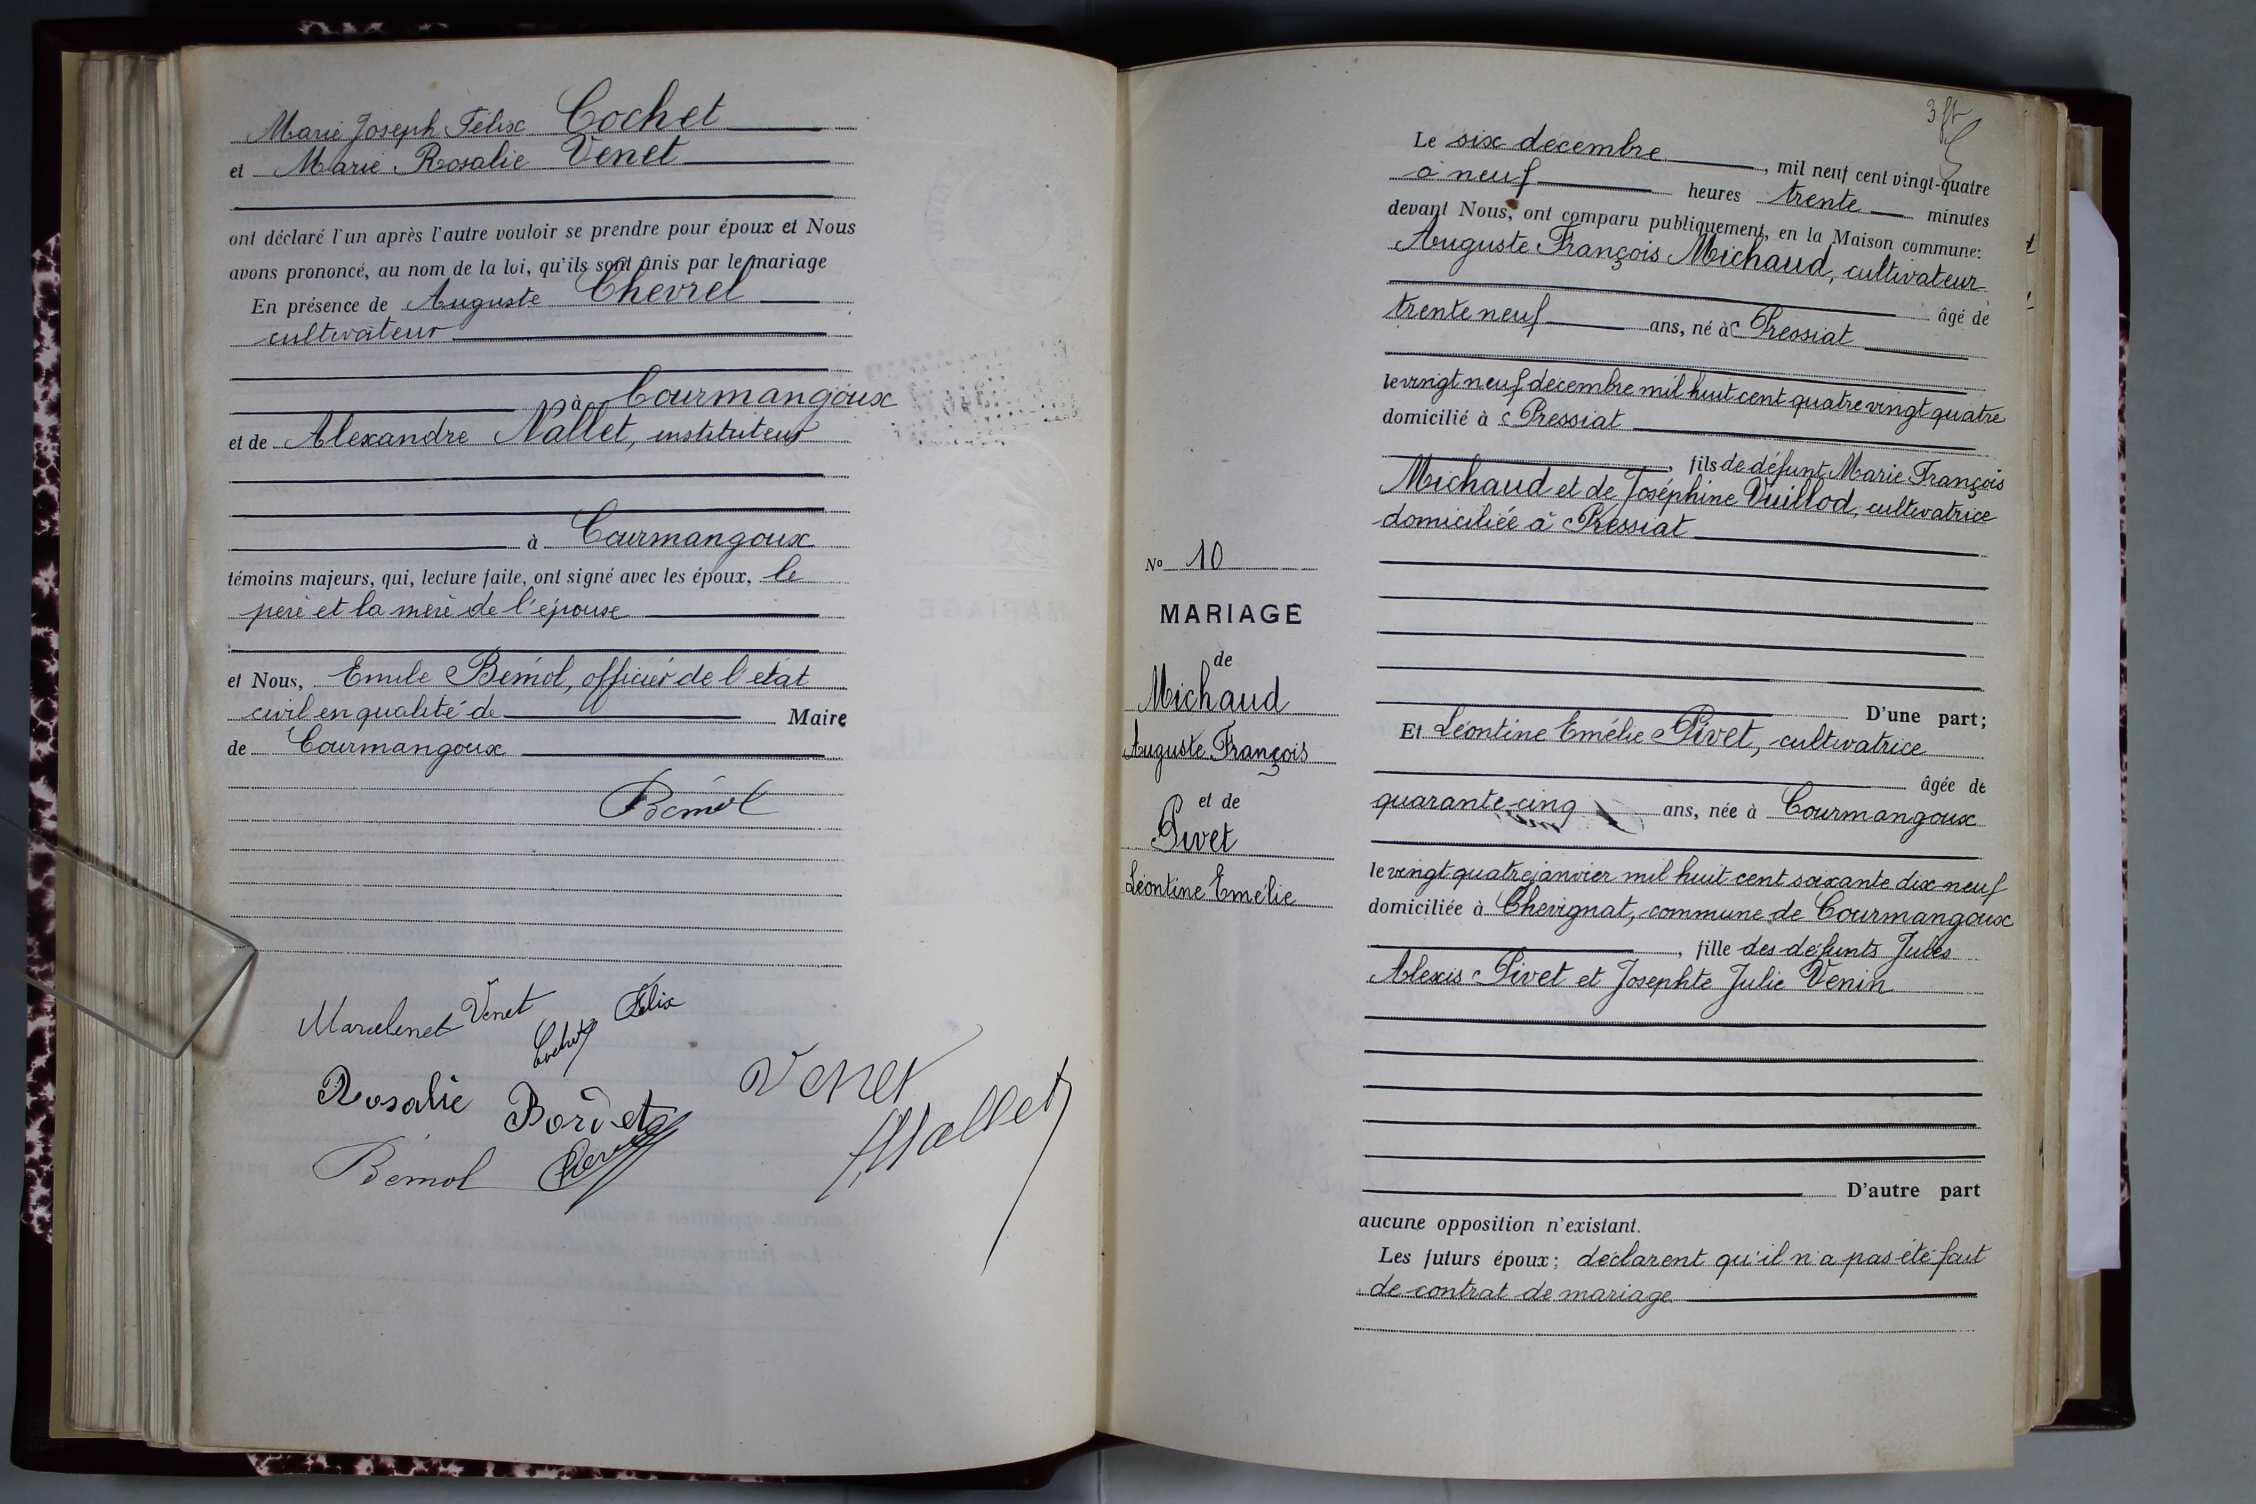 Marie Joseph Félix Cochet
et Marie Rosalie Venet
ont déclaré l'un après l'autre vouloir se prendre pour époux et Nous
avons prononcé, au nom de la loi, qu'ils sont unis par le mariage
En présence de Auguste Chevrel
cultivateur
à Courmangoux
et de Alexandre Nallet, instituteur
à Courmangoux
témoins majeurs, qui, lecture faite, ont signé avec les époux, le
père et la mère de l'épouse
et Nous, Emile Bémol, officier de l'état
civil en qualité de Maire
de Courmangoux
Bémol
Venet Félix
Cochet
Rosalie Bordet Venet
Nallet
Bémol Chevrel
Le six décembre, mil neuf cent vingt-quatre
à neuf heures trente minutes
devant Nous, ont comparu publiquement, en la Maison commune:
Auguste François Michaud, cultivateur
âgé de
trente neuf ans, né à Pressiat
le vingt neuf décembre mil huit cent quatre vingt quatre
domicilié à Pressiat
, fils de défunt Marie François
Michaud et de Joséphine Vuillod, cultivatrice
domiciliée à Pressiat
No 10
MARIAGE
de
Michaud
Auguste François
et de
Pivet
Léontine Emélie
D'une part;
Et Léontine Emélie Pivet, cultivatrice
âgée de
quarante-cinq ans, née à Courmangoux
le vingt quatre janvier mil huit cent soixante dix neuf
domiciliée à Chevignat, commune de Courmangoux
, fille des défunts Jules
Alexis Pivet et Josephte Julie Venin
D'autre part
aucune opposition n'existant.
Les futurs époux; déclarent qu'il n'a pas été fait
de contrat de mariage